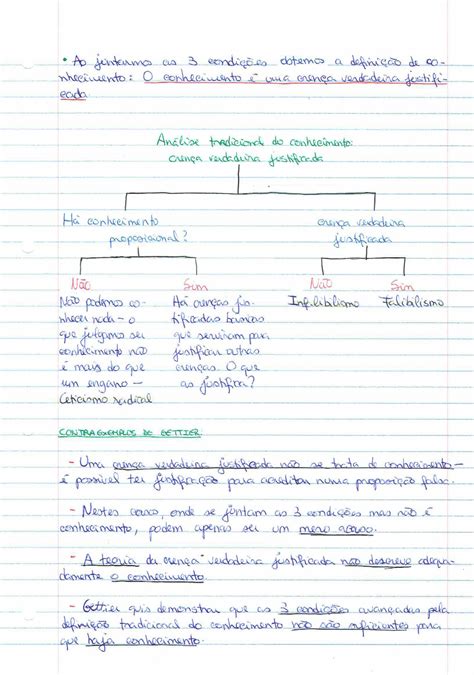 • Ao juntarmos as 3 condições obtemos a definição de co-
nhecimento: O conhecimento é uma crença verdadeira justifi-
cada
Análise tradicional do conhecimento:
crença verdadeira justificada
Há conhecimento
proposicional?
crença verdadeira
justificada
Não
Sim
Não
Sim
Não podemos co-
nhecer nada – o
que julgamos ser
conhecimento não
é mais do que
um engano –
Ceticismo radical
Há crenças jus-
tificadas básicas
que serviram para
justificar outras
crenças. O que
as justifica?
Infalibilismo
Falibilismo
CONTRAEXEMPLOS DE GETTIER:
- Uma crença verdadeira justificada não se trata de conhecimento –
é possível ter justificação para acreditar numa proposição falsa.
- Nestes casos, onde se juntam as 3 condições mas não é
conhecimento, podem apenas ser um mero acaso.
- A teoria da crença verdadeira justificada não descreve adequa-
damente o conhecimento.
- Gettier quis demonstrar que as 3 condições avançadas pela
definição tradicional do conhecimento não são suficientes para
que haja conhecimento.